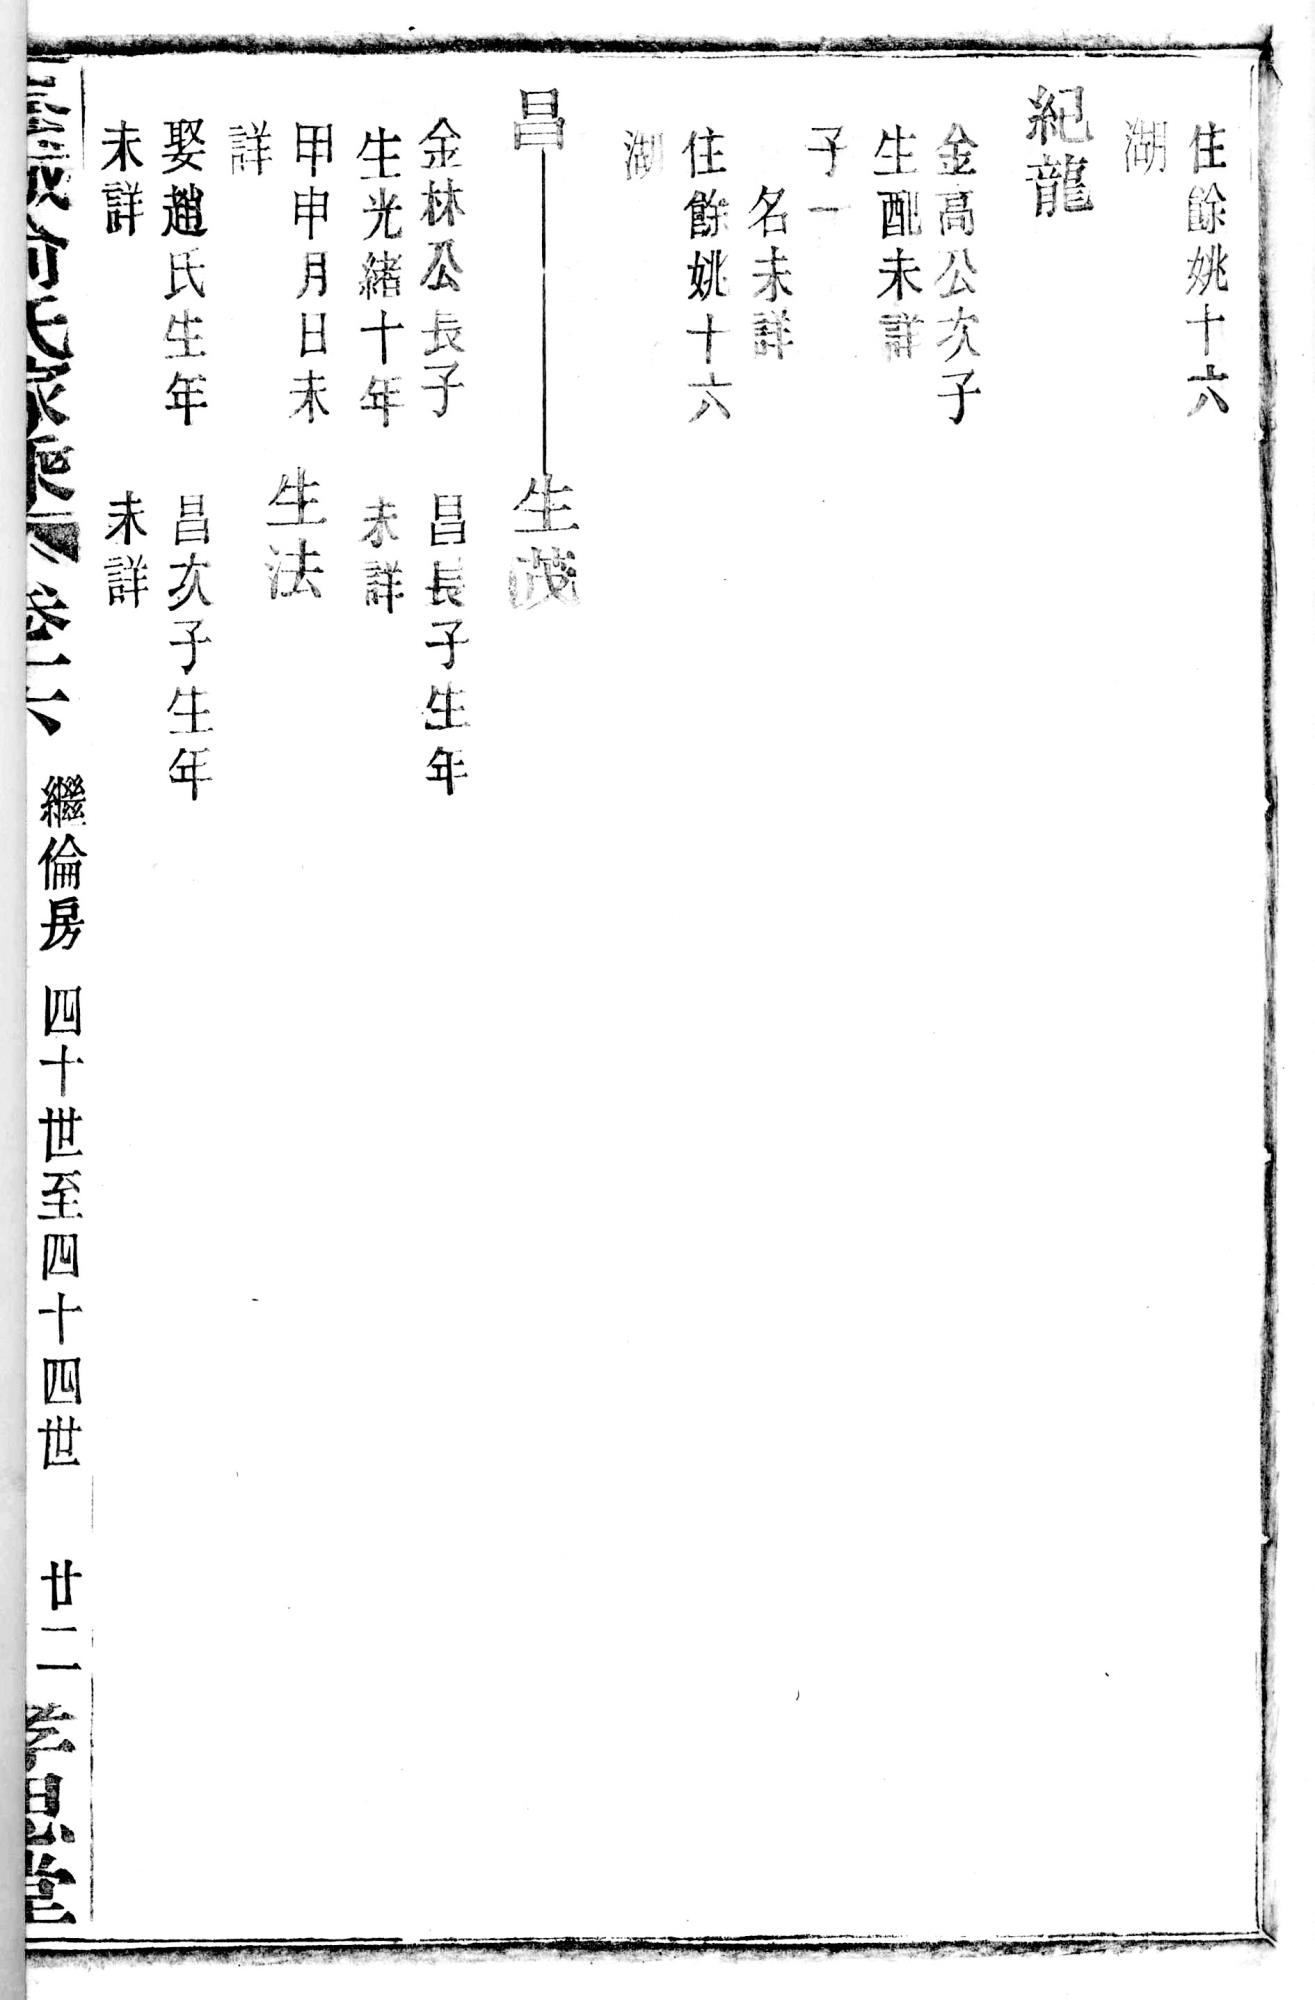 住餘姚十六
湖
紀龍
金高公次子
生配未詳
子一
名未詳
住餘姚十六
湖
昌
生茂
金林公長子
生光緒十年
甲申月日未
詳
娶趙氏生年
未詳
昌長子生年
未詳
生法
昌次子生年
未詳
俞氏家乘
卷十六
繼倫房
四十世至四十四世
廿二
孝思堂